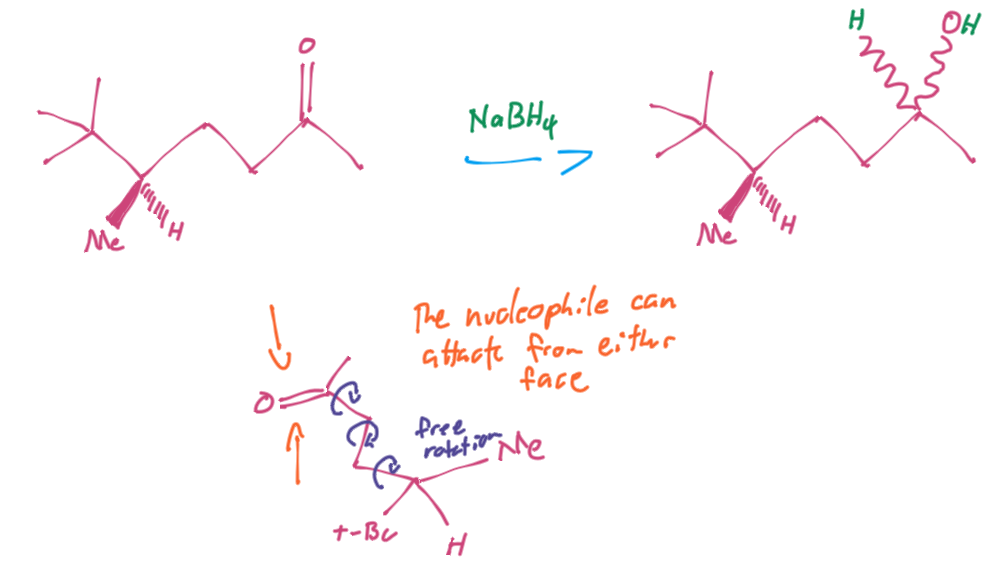 O
H
OH
NaBH4
Me
H
Me
H
The nucleophile can
attack from either
face
O
free
rotation
Me
t-Bu
H